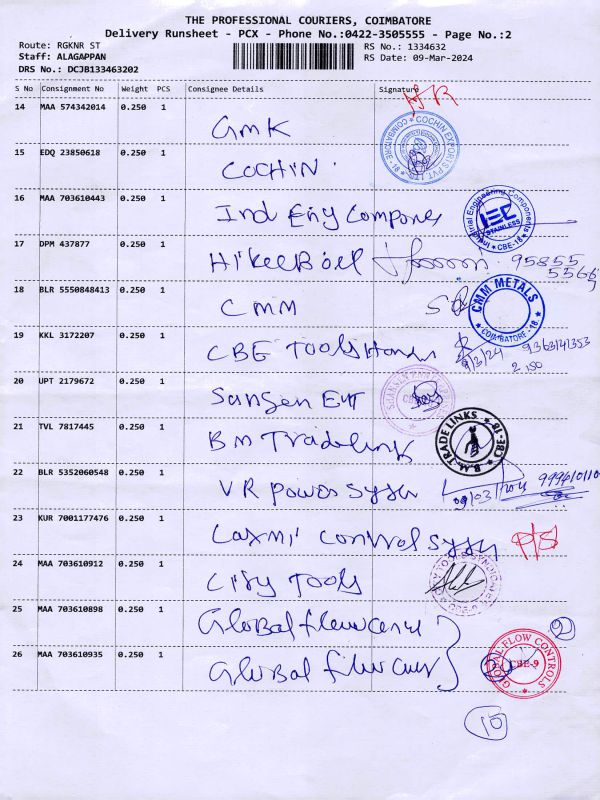 THE PROFESSIONAL COURIERS, COIMBATORE
Delivery Runsheet - PCX - Phone No.:0422-3505555 - Page No.:2
Route: RGKNR ST RS No.: 1334632
Staff: ALAGAPPAN RS Date: 09-Mar-2024
DRS No.: DCJB133463202
S No Consignment No Weight PCS Consignee Details Signature
14 MAA 574342014 0.250 1 GMK
COIMBATORE - 18 * COCHIN EXPORTS PVT LTD
15 EDQ 23850618 0.250 1 COCHIN
16 MAA 703610443 0.250 1 Ind Eng Compones
Industrial Engineering Components IEC STAINLESS * CBE-18 *
17 DPM 437877 0.250 1 Hikee Boil 95855
18 BLR 5550848413 0.250 1 CMM
CMM METALS * COIMBATORE - 18 *
19 KKL 3172207 0.250 1 CBE Tools 9/3/24
2.50
20 UPT 2179672 0.250 1 Sansen Ent
21 TVL 7817445 0.250 1 BM Tradelink
B.M. TRADE LINKS * CBE-18 *
22 BLR 5352060548 0.250 1 VR power
23 KUR 7001177476 0.250 1 Laxmi control
24 MAA 703610912 0.250 1 City Tools
CBE-9
25 MAA 703610898 0.250 1 Global
2
26 MAA 703610935 0.250 1 Global
GLOBAL FLOW CONTROLS * CBE-9
15